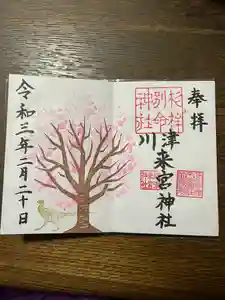 奉拝
杉桙別命神社
川津来宮神社
令和三年二月二十日